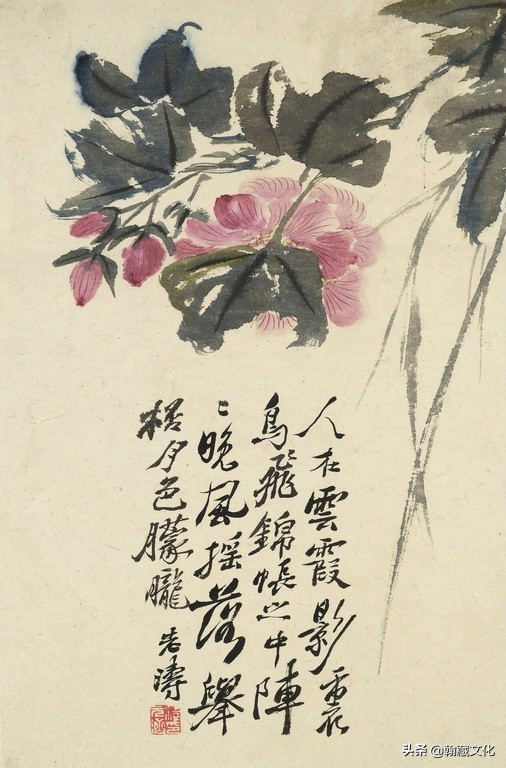 人在雲霞影裏
鳥飛錦帳之中陣
〻晚風搖落舉
月色朦朧 老濤
头条 @翰藏文化